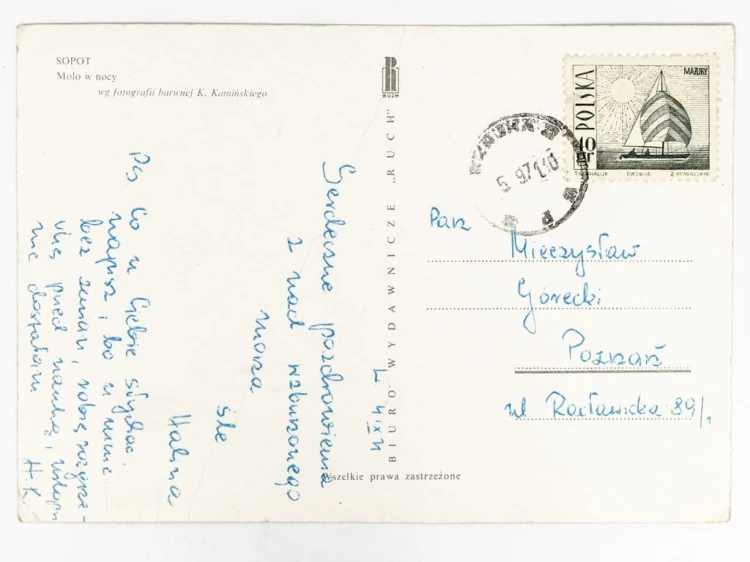 SOPOT
Molo w nocy
wg fotografii barwnej K. Kamińskiego
BIURO WYDAWNICZE „RUCH"
RUCH
POLSKA
MAZURY
40 gr
PWPW 66
Z. KOWALSKI
5.-971.10
Pan
Mieczysław
Górecki
Poznań
ul Racławicka 89/1
L 4 IX 71
Serdeczne pozdrowienia
z nad wzburzonego
morza
śle
Halina
Ps Co u Ciebie słychać,
napisz, bo u mnie
bez zmian, robię
przed nauką, wstępu
nie dostałam
H.K.
Wszelkie prawa zastrzeżone